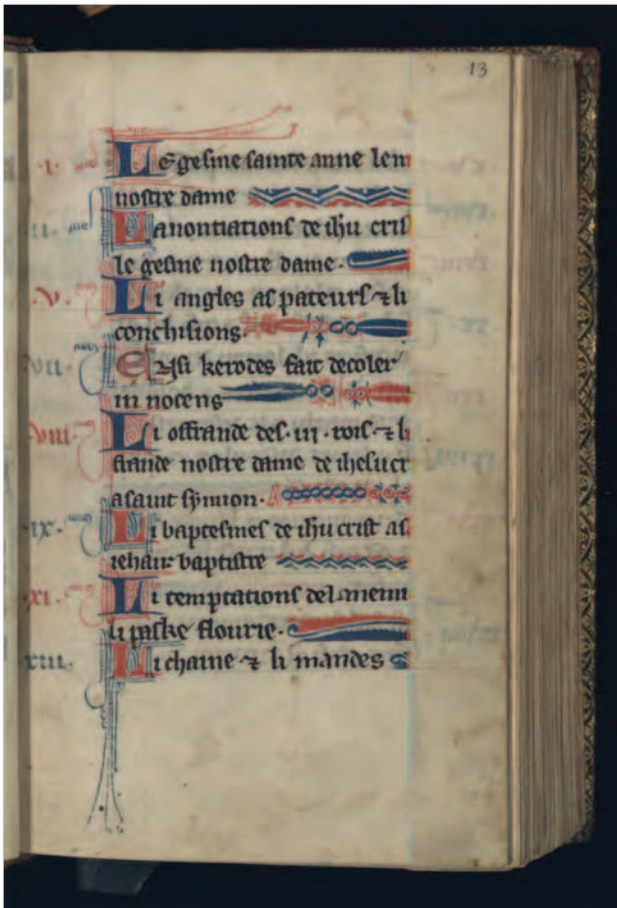 13
.i. Le gesine sainte anne lem
nostre dame
.ii. Lanontiations de ihu cris
le gesine nostre dame.
.v. Li angles as pateurs ⁊ li
conchisions.
.vii. Ensi kerodes fait decoler
in nocens
.viii. Li offrande des .iii. rois ⁊ li
frande nostre dame de ihesu cr
a saint symon.
.ix. Li baptesmes de ihu crist as
iehan baptistre
.xi. Li temptations del anemi
li paske flourie.
.xiii. Li chaine ⁊ li mandes